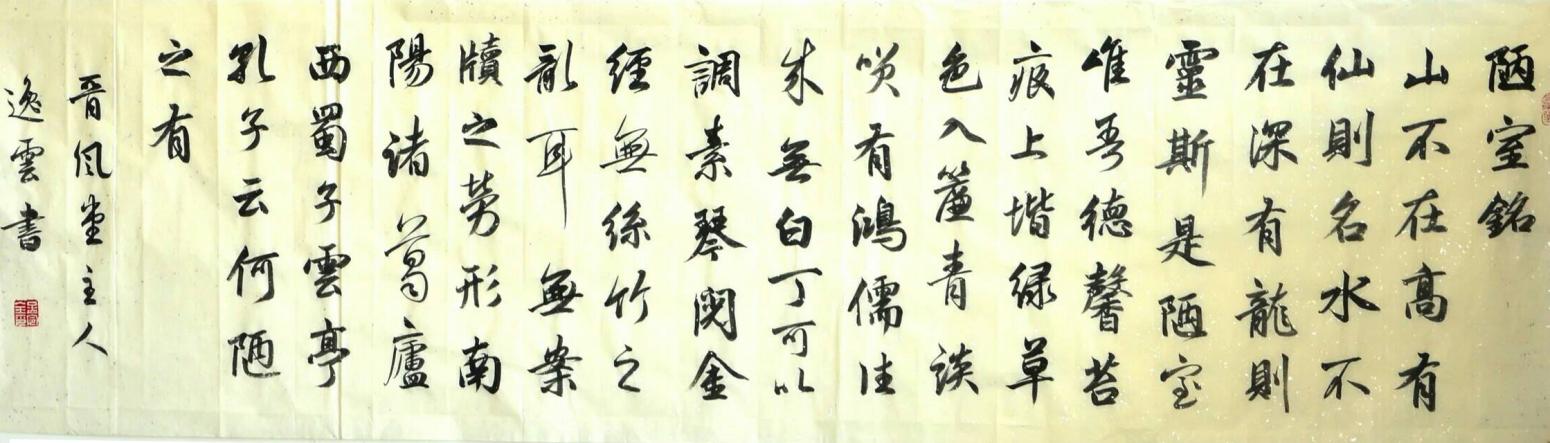 陋室銘
山不在高有
仙則名水不
在深有龍則
靈斯是陋室
唯吾德馨苔
痕上堦緑草
色入簾青談
咲有鴻儒往
來無白丁可以
調素琴閱金
經無絲竹之
亂耳無案
牘之勞形南
陽諸葛廬
西蜀子雲亭
孔子云何陋
之有
晋風堂主人
逸雲書